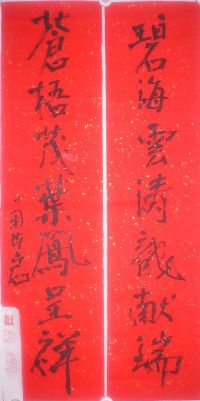 碧海雲濤龍献瑞
蒼梧茂葉鳳呈祥